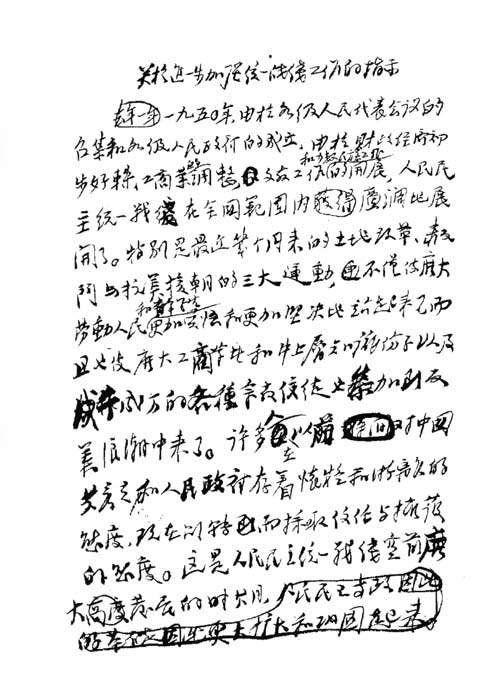 关于进一步加强统一战线工作的指示
去年一年一九五〇年，由於各级人民代表会议的
召集和各级人民政府的成立，由於财政经济初
步好转，工商业的调整，文教工作的开展，人民民
主统一战线在全国範围内获得广阔地展
开了。特别是最近几个月来的土地改革、镇反
与抗美援朝的三大运动，不僅使广大
劳动人民和青年学生更加坚决地站起来了，而
且也使广大工商业者和上层知识份子以及
成千成万的各種宗教信徒也参加到反
美浪潮中来了。许多在以前对中国
共产党和人民政府存着怀疑和游离的
态度，现在则转而採取信任与擁护
的态度。这是人民民主统一战线空前广
大高度发展的时期。人民民主专政因此
更大扩大和巩固起来。